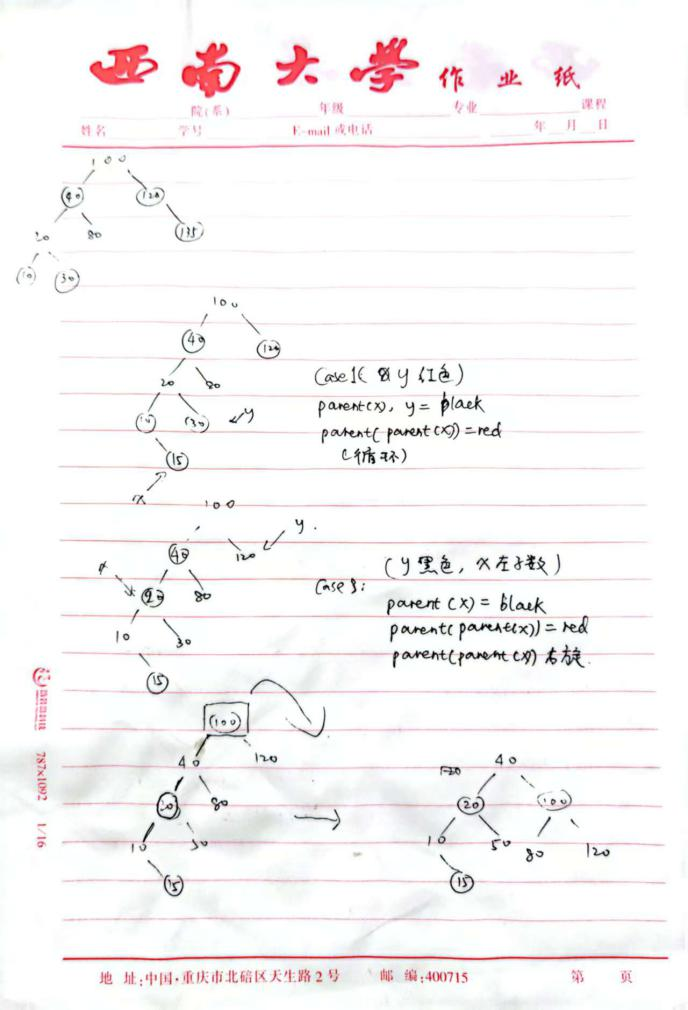 西南大学 作业纸
院(系) 年级 专业 课程
姓名 学号 E-mail 或电话 年 月 日
100
40 120
20 80 135
10 30
100
40 120
20 80
10 30 y
15
x
Case 1( y 红色)
parent(x), y = black
parent(parent(x))=red
(循环)
100
y.
40 120
x 20 80
10 30
15
Case 3:
(y 黑色, x 左子数)
parent (x) = black
parent(parent(x)) = red
parent(parent(x)) 右旋.
100
40 120
20 80
10 30
15
40
20 100
10 50 80 120
15
787×1092 1/16
地 址:中国·重庆市北碚区天生路2号 邮 编:400715 第 页